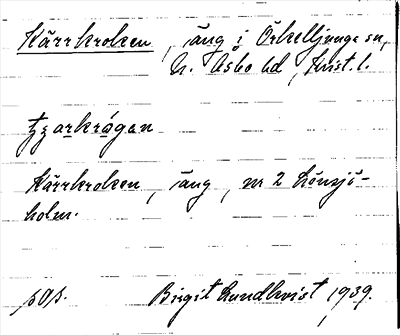 Kärrkroken, äng i Örkelljunga sn,
N. Åsbo hd, Krist. l.
tʒarkrågen
Kärrkroken, äng, nr 2 Lönsjö-
holm.
pop. Birgit Lundkvist, 1939.